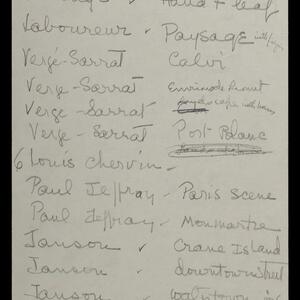 Hand & leaf
Laboureur - Paysage with
Vergé-Sarrat Calvi
Verge-Sarrat
Verge-Sarrat
Verge-Sarrat Port Blanc
6 Louis Chervin -
Paul Jeffray - Paris scene
Paul Jeffray - Monmartre
Janson ✓ Crane Island
Janson ✓ downtown street
Janson ✓